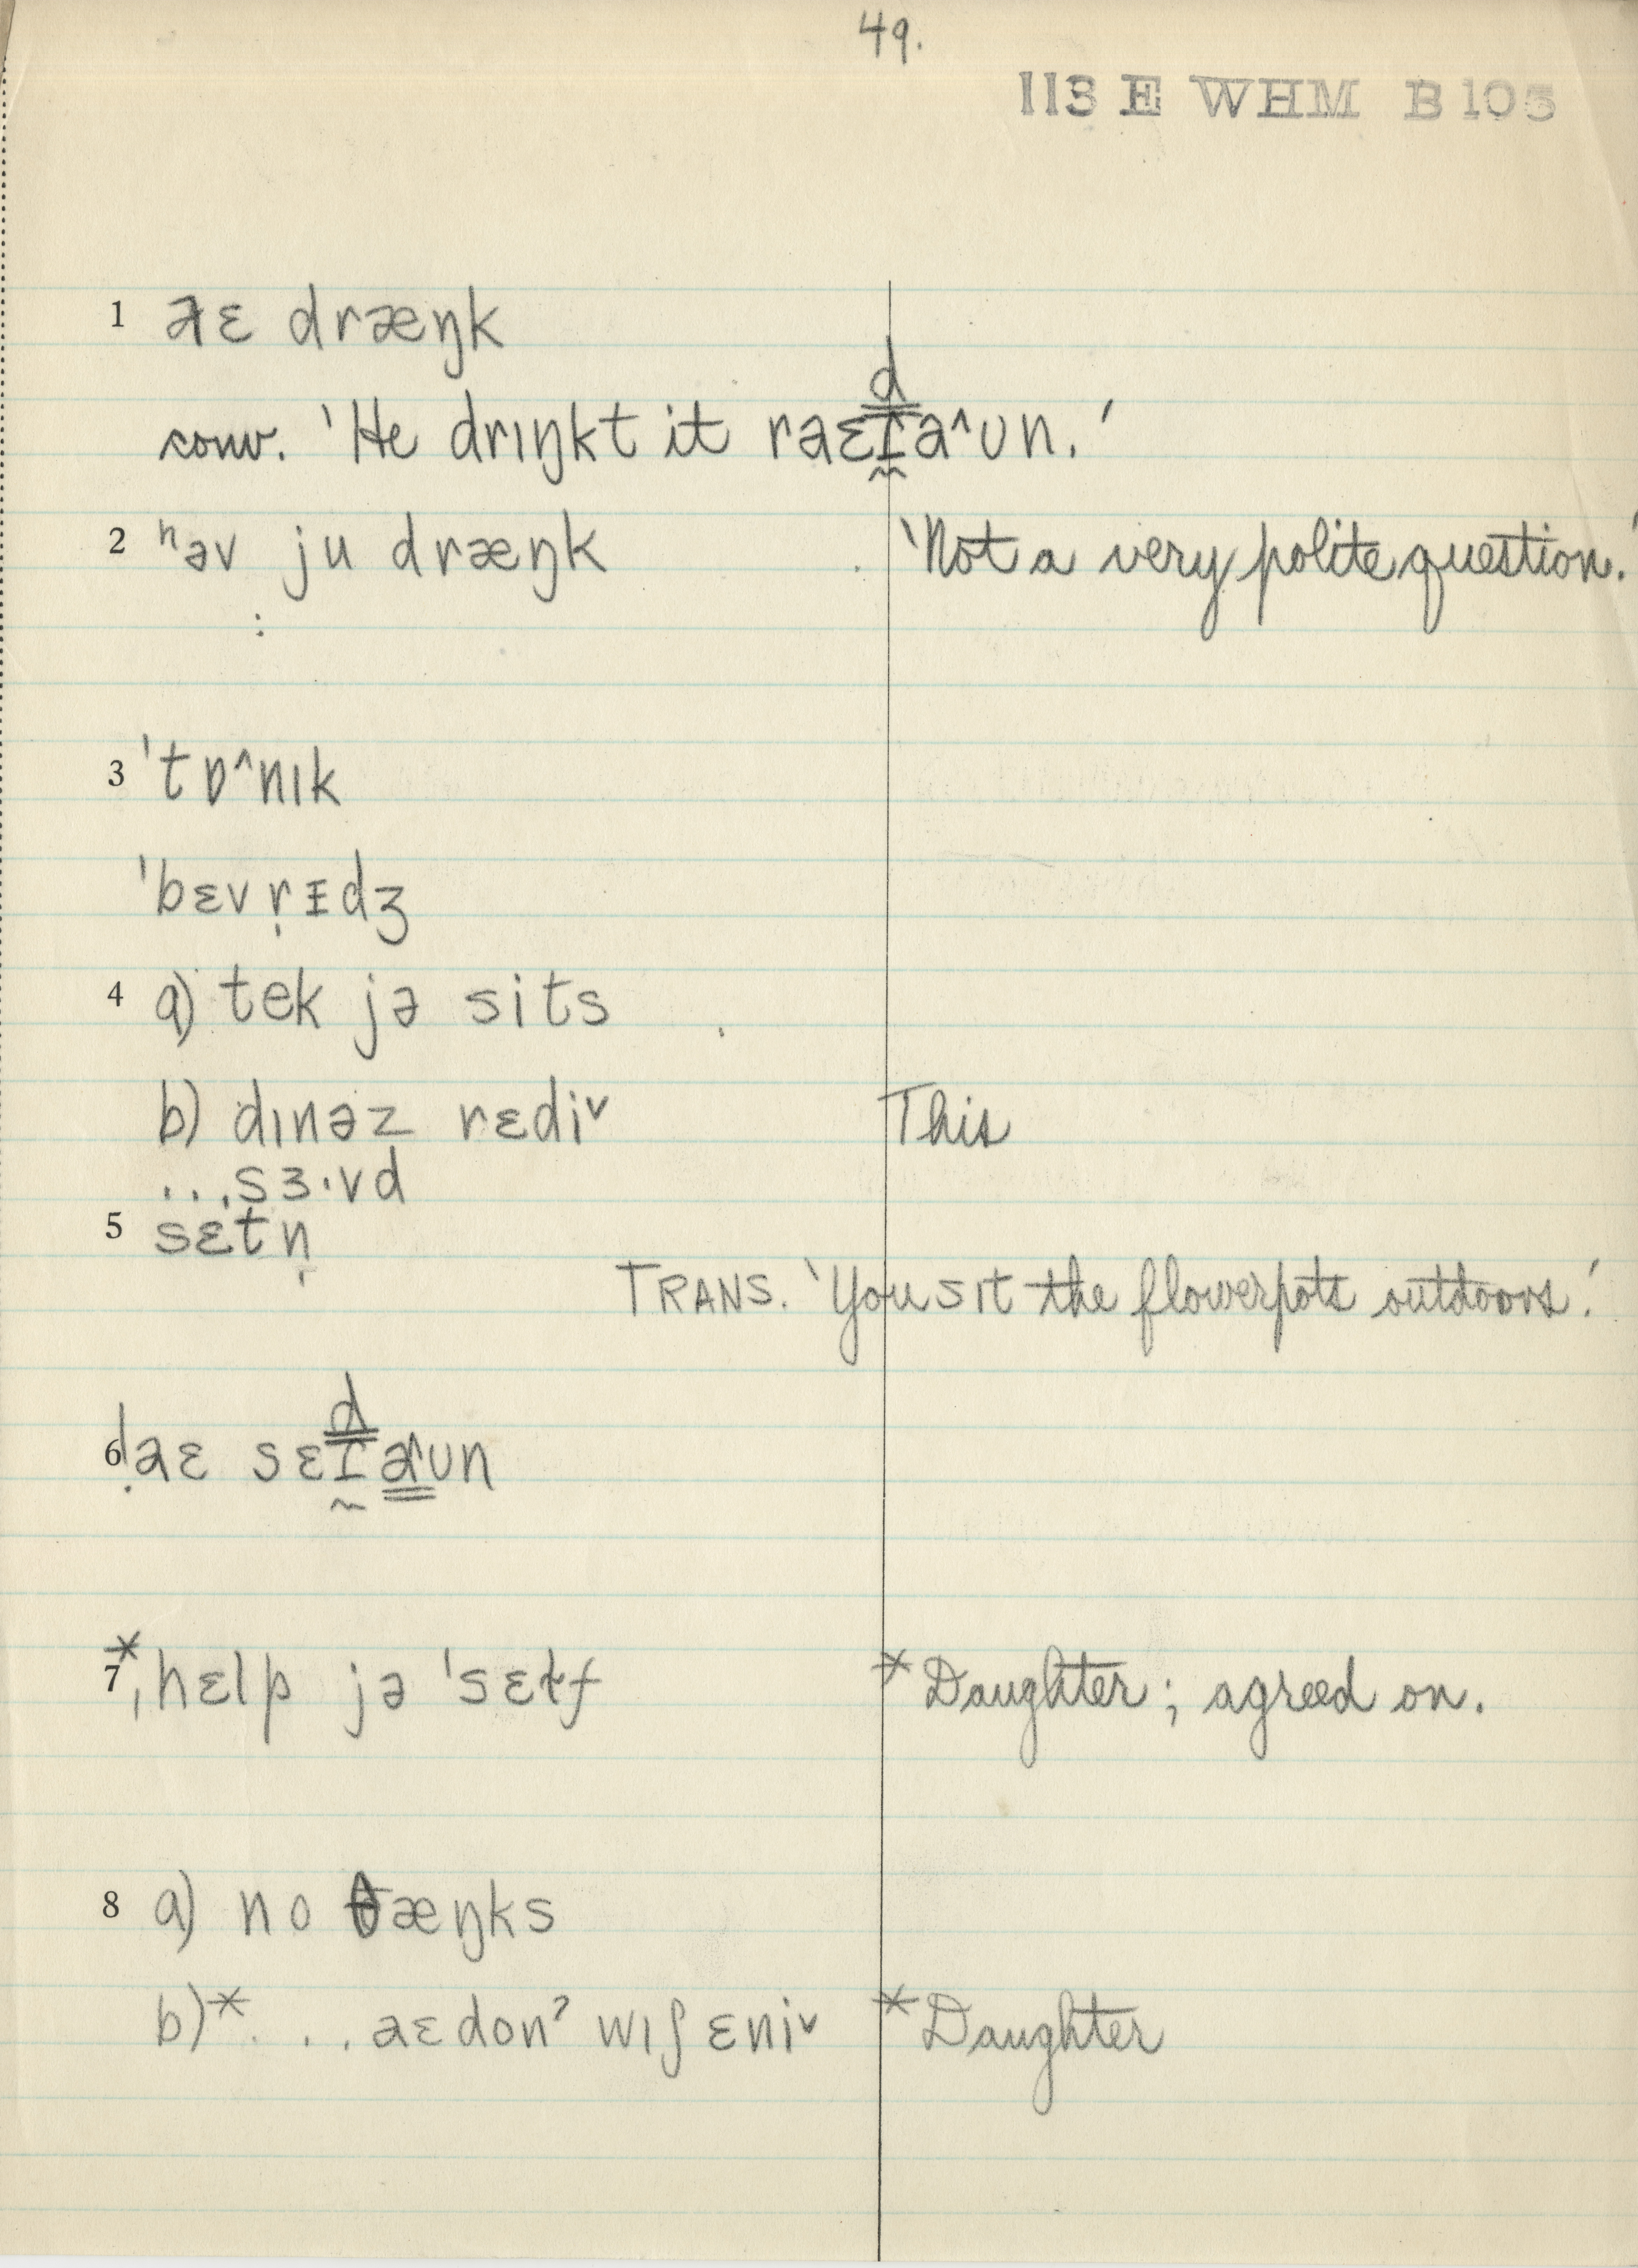 49.
113 E WHM B 105
1 aɛ dræŋk
d
conv. 'He drɪŋkt it raɛɾa^ʊn.'
2 ʰəv ju dræŋk 'Not a very polite question.'
:
3 ˈtɒ^nɪk
ˈbɛvṛɪdʒ
4 a) tek jə sits
b) dɪnəz rɛdiᵛ This
...sɜ·vd
5 sɛtṇ
TRANS. 'You sɪt the flowerpots outdoors.'
d
6 ḷaɛ sɛɾa^ʊn
7 *ˌhɛlp jə ˈsɛɫf *Daughter; agreed on.
8 a) no θæŋks
b)* ... aɛdonˀ wɪʃ ɛniᵛ *Daughter